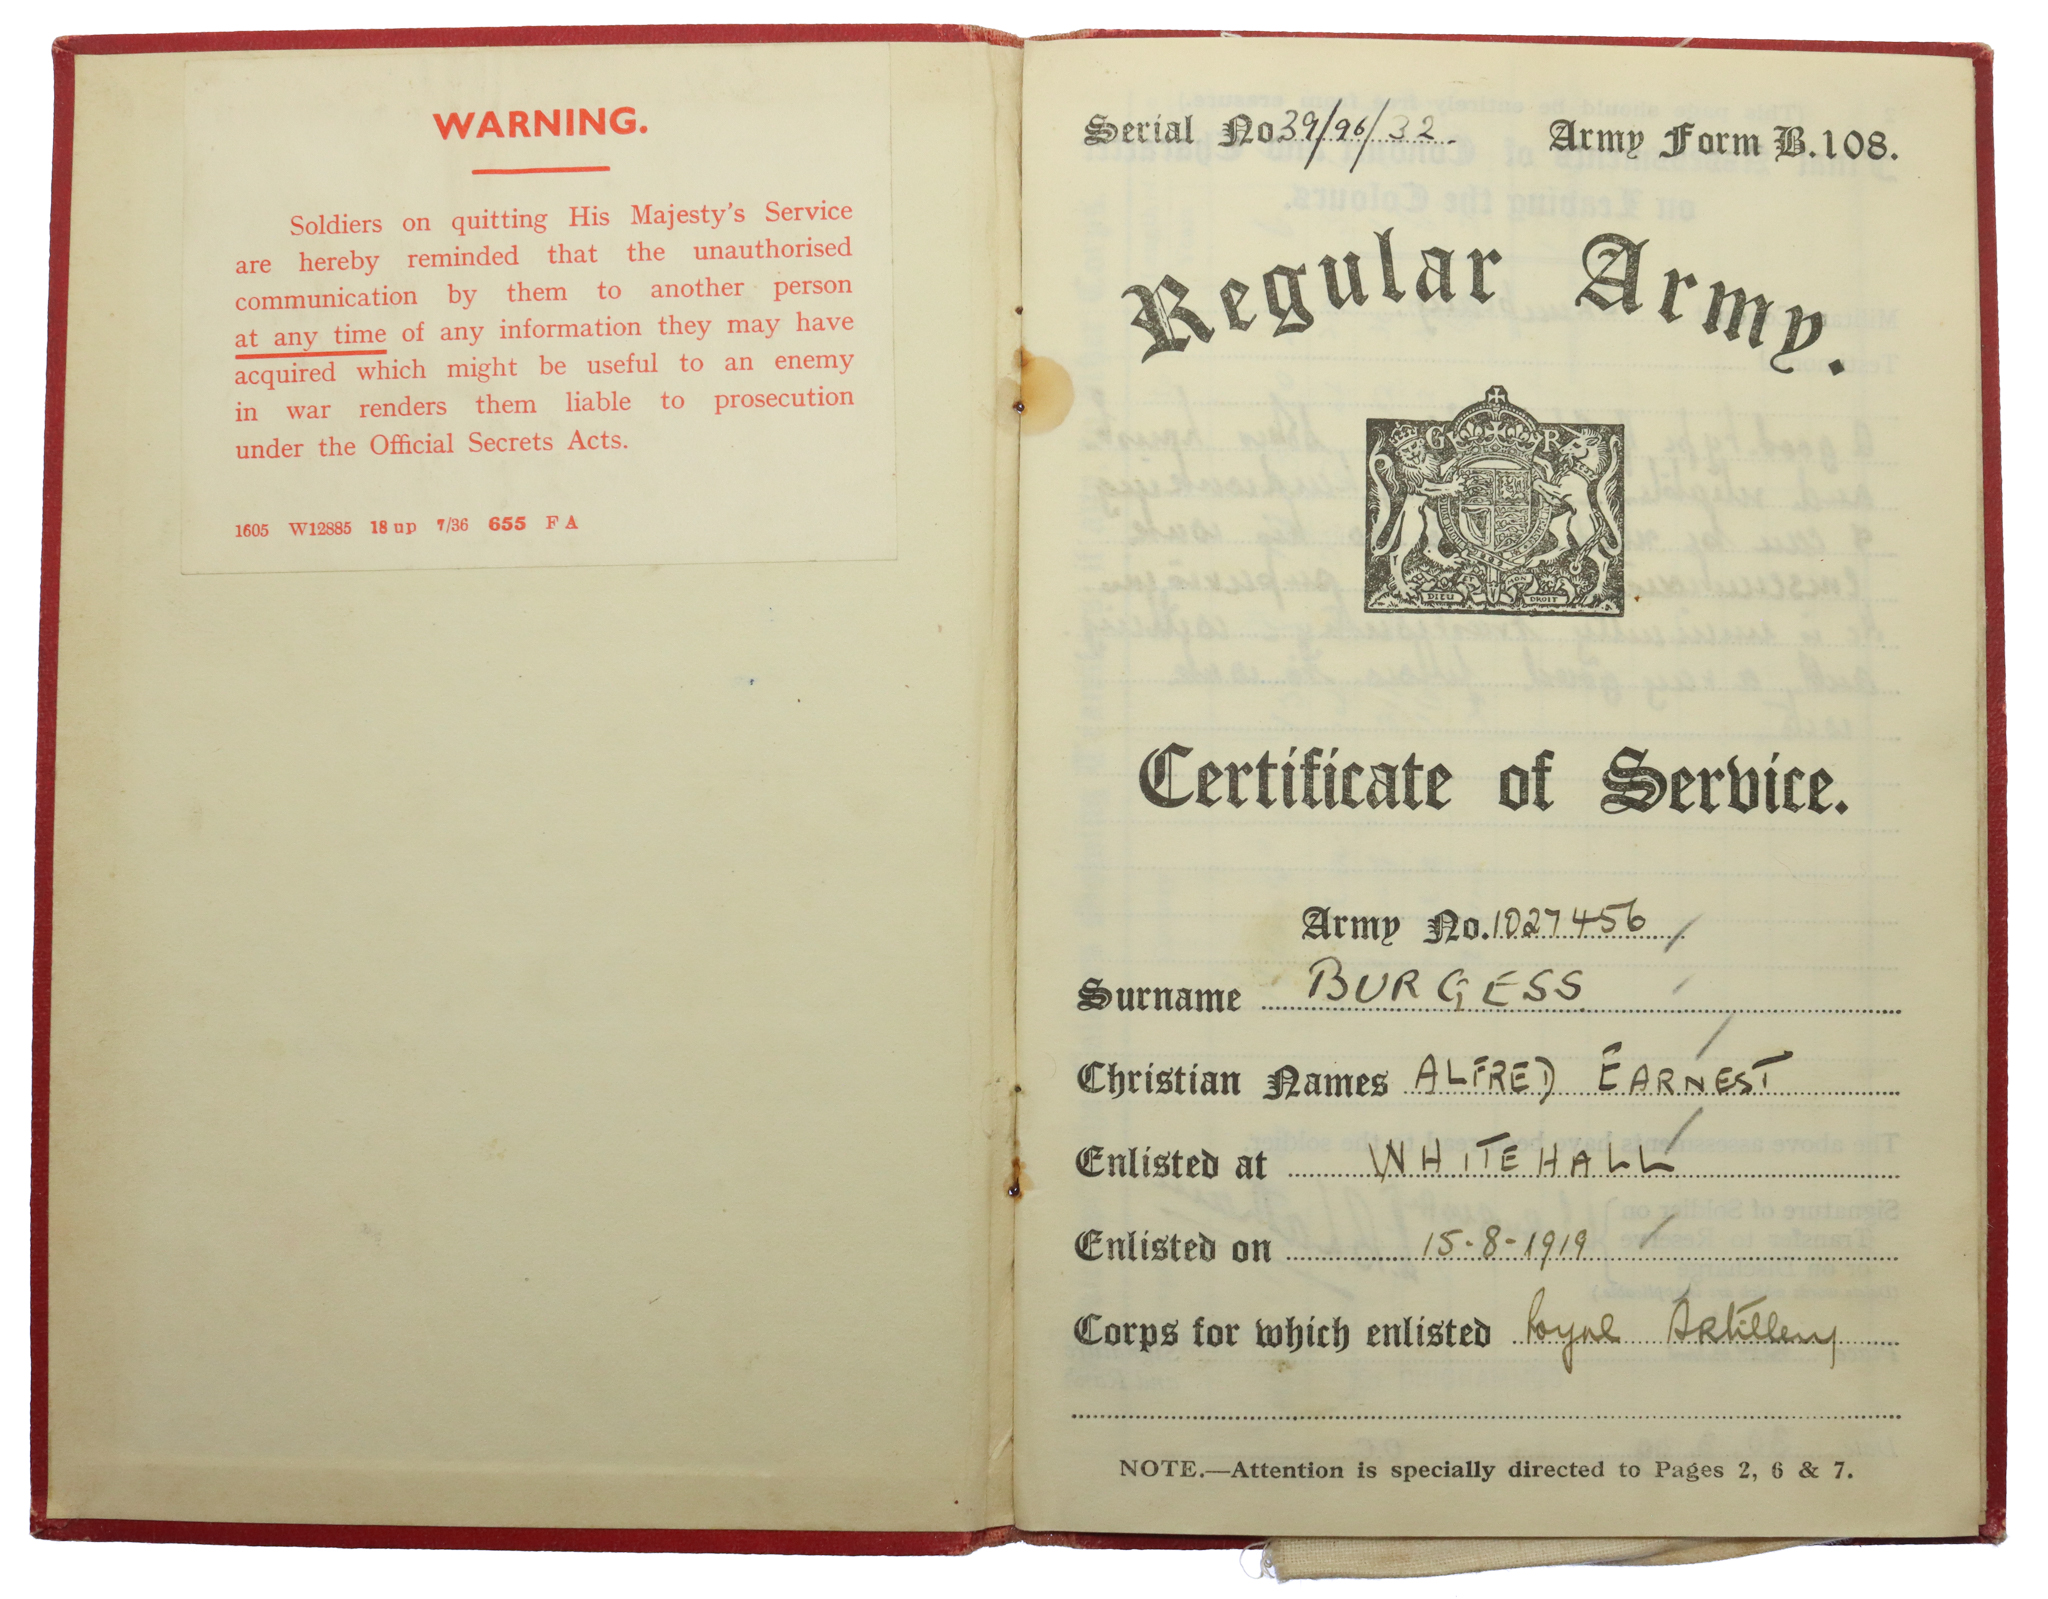 WARNING.
Soldiers on quitting His Majesty's Service
are hereby reminded that the unauthorised
communication by them to another person
at any time of any information they may have
acquired which might be useful to an enemy
in war renders them liable to prosecution
under the Official Secrets Acts.
1605 W12885 18 up 7/36 655 F A
Serial No 39/96/32 Army Form B.108.
Regular Army.
G R
DIEU MON DROIT
Certificate of Service.
Army No. 1027456
Surname BURGESS
Christian Names ALFRED EARNEST
Enlisted at WHITEHALL
Enlisted on 15-8-1919
Corps for which enlisted Royal Artillery
NOTE.—Attention is specially directed to Pages 2, 6 & 7.